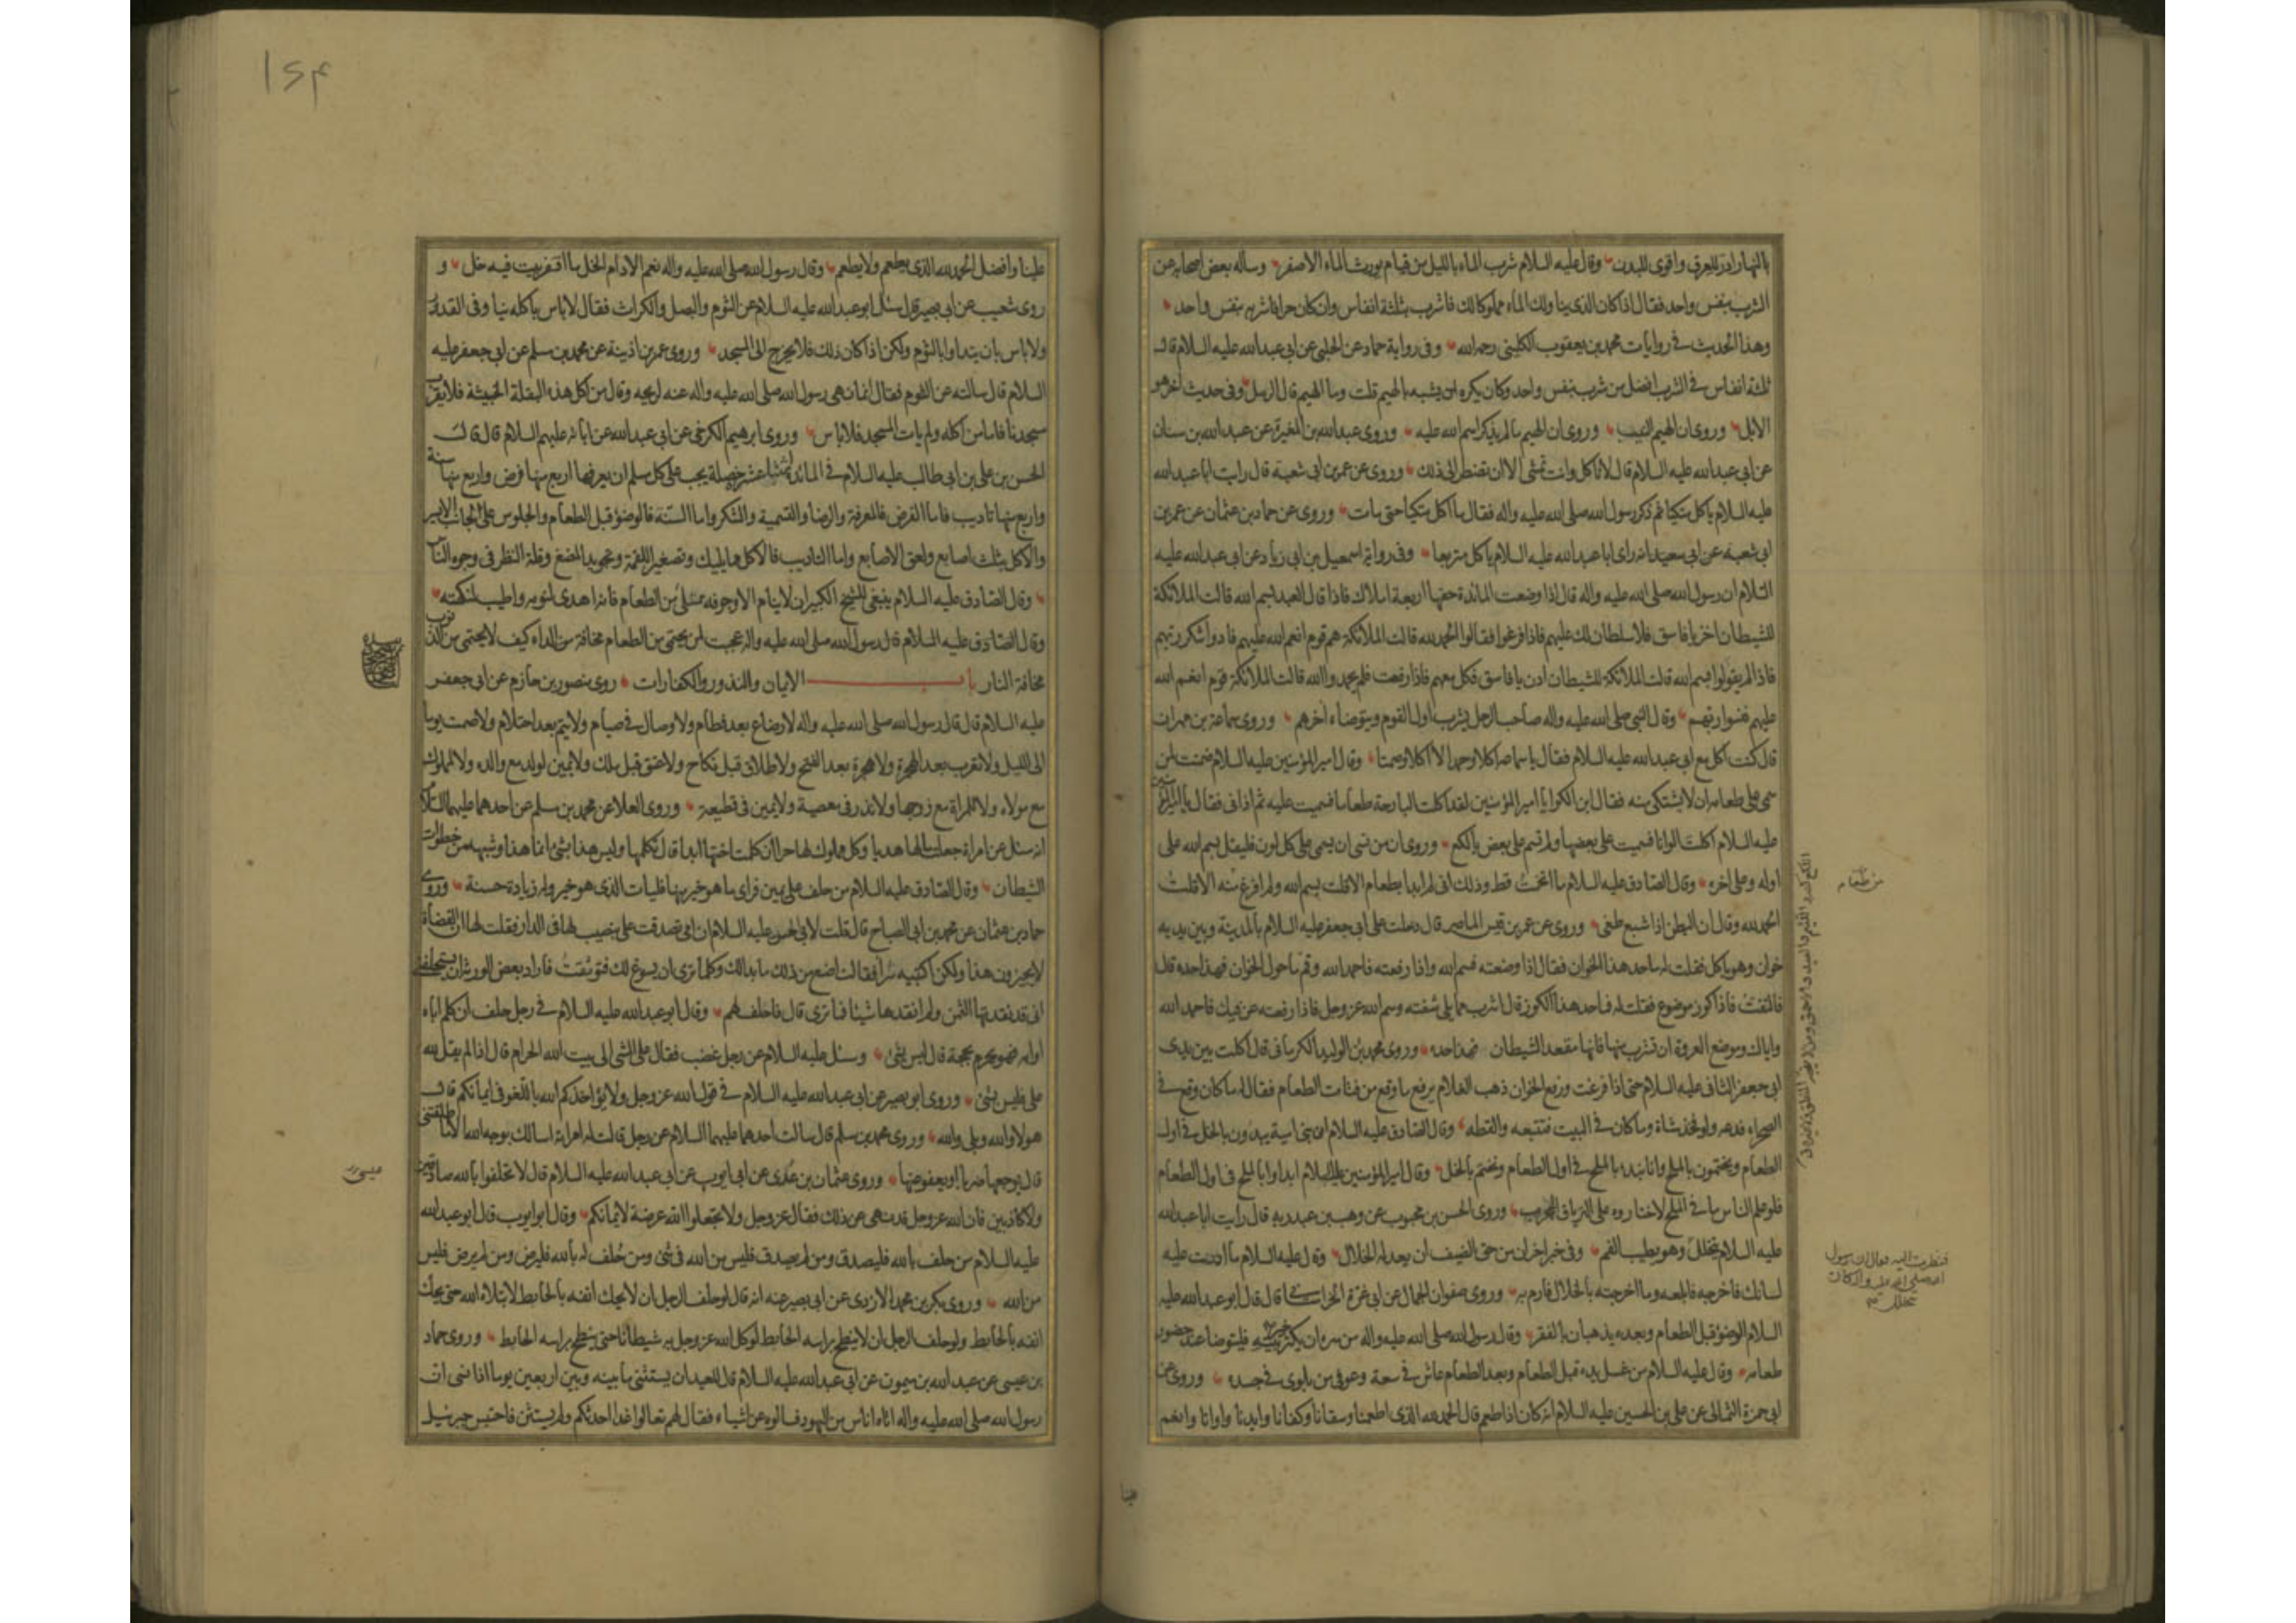 بالنهار ادر للعرق واقوى للبدن وقال عليه السلام شرب الماء بالليل من قيام يورث الماء الاصفر وساله بعض اصحابه عن
الشرب بنفس واحد فقال اذا كان الذي يناولك الماء مملوكا لك فاشرب بثلثة انفاس وان كان حرا فاشربه بنفس واحد
وهذا الحديث في روايات محمد بن يعقوب الكليني رحمه الله وفي رواية حماد عن الحلبي عن ابي عبد الله عليه السلام قال
ثلثة انفاس في الشرب افضل من شرب بنفس واحد وكان يكره ان يشبه بالهيم قلت وما الهيم قال الرمل وفي حديث اخر هو
الابل وروى ان الهيم النيب وروى ان الهيم ما لم يذكر اسم الله عليه وروى عبد الله بن المغيرة عن عبد الله بن سنان
عن ابي عبد الله عليه السلام قال لا تاكل وانت تمشي الا ان تضطر الى ذلك وروى عن عمر بن ابي شعبة قال رايت ابا عبد الله
عليه السلام ياكل متكيا ثم ذكر رسول الله صلى الله عليه واله فقال ما اكل متكيا حتى مات وروى عن حماد بن عثمان عن عمر بن
ابي شعبة عن ابي سعيد انه راى ابا عبد الله عليه السلام ياكل متربعا وفي رواية اسمعيل بن ابي زياد عن ابي عبد الله عليه
السلام ان رسول الله صلى الله عليه واله قال اذا وضعت المائدة حفها اربعة املاك فاذا قال العبد بسم الله قالت الملائكة
للشيطان اخرج يا فاسق فلا سلطان لك عليهم فاذا فرغوا فقالوا الحمد لله قالت الملائكة هم قوم انعم الله عليهم فادوا شكر ربهم
فاذا لم يقولوا بسم الله قالت الملائكة للشيطان ادن يا فاسق فكل معهم فاذا رفعت فلم يحمدوا الله قالت الملائكة قوم انعم الله
عليهم فنسوا ربهم وقال النبي صلى الله عليه واله صاحب الرحل يشرب اول القوم ويتوضاء اخرهم وروى سماعة بن مهران
قال كنت اكل مع ابي عبد الله عليه السلام فقال يا سماعة اكلا وحمدا لا اكلا وصمتا وقال امير المؤمنين عليه السلام ضمنت لمن
سمى على طعامه ان لا يشتكي منه فقال ابن الكوا يا امير المؤمنين لقد اكلت البارحة طعاما فسميت عليه ثم اذاني فقال امير المؤمنين
عليه السلام اكلت الوانا فسميت على بعضها ولم تسم على بعض يا لكع وروى ان من نسي ان يسمي على كل لون فليقل بسم الله على
اوله وعلى اخره وقال الصادق عليه السلام ما اتخمت قط وذلك اني لم ابدا بطعام الا قلت بسم الله ولم افرغ منه الا قلت
الحمد لله وقال ان البطن اذا شبع طغى وروى عن عمر بن قيس الماصر قال دخلت على ابي جعفر عليه السلام بالمدينة وبين يديه
خوان وهو ياكل فقلت له ما حد هذا الخوان فقال اذا وضعته فسم الله واذا رفعته فاحمد الله وقم ما حول الخوان فهذا حده قال
فالتفت فاذا كوز موضوع فقلت له فما حد هذا الكوز قال اشرب مما يلي شفته وسم الله عز وجل فاذا رفعته عن فيك فاحمد الله
واياك وموضع العروة ان تشرب منها فانها مقعد الشيطان فهذا حده وروى محمد بن الوليد الكرماني قال اكلت بين يدي
ابي جعفر الثاني عليه السلام حتى اذا فرغت ورفع الخوان ذهب الغلام يرفع ما وقع من فتات الطعام فقال له ما كان وقع في
الصحراء فدعه ولو فخذ شاة وما كان في البيت فتتبعه والقطه وقال الصادق عليه السلام ان بني امية يبدؤن بالخل في اول
الطعام ويختمون بالملح وانا نبدء بالملح في اول الطعام ونختم بالخل وقال امير المؤمنين عليه السلام ابداوا بالملح في اول الطعام
فلو علم الناس ما في الملح لاختاروه على الترياق المجرب وروى الحسن بن محبوب عن وهب بن عبد ربه قال رايت ابا عبد الله
عليه السلام يتخلل وهو يطيب الفم وفي خبر اخر ان من حق الضيف ان يعد له الخلال وقال عليه السلام ما ادرت عليه
لسانك فاخرجه فابلعه وما اخرجته بالخلال فارم به وروى صفوان الجمال عن ابي غرة الخراساني قال قال ابو عبد الله عليه
السلام الوضوء قبل الطعام وبعده يذهبان بالفقر وقال رسول الله صلى الله عليه واله من سره ان يكثر خير بيته فليتوضا عند حضور
طعامه وقال عليه السلام من غسل يده قبل الطعام وبعد الطعام عاش في سعة وعوفي من بلوى في جسده وروى عن
ابي حمزة الثمالي عن علي بن الحسين عليه السلام انه كان اذا طعم قال الحمد لله الذي اطعمنا وسقانا وكفانا وايدنا واوانا وانعم
من طعام
فنظرت اليه فقال ان رسول
الله صلى الله عليه واله كان
يتخلل
علينا
١٥٣
علينا وافضل الحمد لله الذي يطعم ولا يطعم وقال رسول الله صلى الله عليه واله نعم الادام الخل ما اقفر بيت فيه خل و
روى شعيب عن ابي بصير قال سئل ابو عبد الله عليه السلام عن الثوم والبصل والكراث فقال لا باس باكله نيا وفي القدور
ولا باس بان يتداوا بالثوم ولكن اذا كان ذلك فلا يخرج الى المسجد وروى عمر بن اذينة عن محمد بن مسلم عن ابي جعفر عليه
السلام قال سالته عن الثوم فقال انما نهى رسول الله صلى الله عليه واله عنه لريحه وقال من اكل هذه البقلة الخبيثة فلا يقرب
مسجدنا فاما من اكله ولم يات المسجد فلا باس وروى ابرهيم الكرخي عن ابي عبد الله عن ابائه عليهم السلام قال قال
الحسن بن علي بن ابي طالب عليه السلام في المائدة اثنتا عشر خصلة يجب على كل مسلم ان يعرفها اربع منها فرض واربع منها سنة
واربع منها تاديب فاما الفرض فالمعرفة والرضا والتسمية والشكر واما السنة فالوضوء قبل الطعام والجلوس على الجانب الايسر
والاكل بثلث اصابع ولعق الاصابع واما التاديب فالاكل مما يليك وتصغير اللقمة وتجويد المضغ وقلة النظر في وجوه الناس
وقال الصادق عليه السلام ينبغي للشيخ الكبير ان لا ينام الا وجوفه ممتلئ من الطعام فانه اهدى لنومه واطيب لنكهته
وقال الصادق عليه السلام قال رسول الله صلى الله عليه واله عجبت لمن يحتمي من الطعام مخافة من الداء كيف لا يحتمي من الذنوب
مخافة النار باب الايمان والنذور والكفارات روى منصور بن حازم عن ابي جعفر
عليه السلام قال قال رسول الله صلى الله عليه واله لا رضاع بعد فطام ولا وصال في صيام ولا يتم بعد احتلام ولا صمت يوما
الى الليل ولا تعرب بعد الهجرة ولا هجرة بعد الفتح ولا طلاق قبل نكاح ولا عتق قبل ملك ولا يمين لولد مع والده ولا لمملوك
مع مولاه ولا للمراة مع زوجها ولا نذر في معصية ولا يمين في قطيعة وروى العلا عن محمد بن مسلم عن احدهما عليهما السلام
انه سئل عن امراة جعلت مالها هديا وكل مملوك لها حرا ان كلمت اختها ابدا قال تكلمها وليس هذا بشئ انما هذا وشبهه من خطوات
الشيطان وقال الصادق عليه السلام من حلف على يمين فراى ما هو خير منها فليات الذي هو خير وله زيادة حسنة وروى
حماد بن عثمان عن محمد بن ابي الصباح قال قلت لابي الحسن عليه السلام ان امي تصدقت علي بنصيب لها في الدار فقلت لها ان القضاة
لا يجيزون هذا ولكن اكتبيه شرا فقالت اصنع من ذلك ما بدا لك وكلما ترى ان يسوغ لك فتوثقت فاراد بعض الورثة ان يستحلفني
اني قد نقدتها الثمن ولم انقدها شيئا فما ترى قال فاحلف لهم وقال ابو عبد الله عليه السلام في رجل حلف ان كلم اباه
او امه فهو محرم بحجة قال ليس بشئ وسئل عليه السلام عن رجل غضب فقال علي المشي الى بيت الله الحرام قال اذا لم يقل لله
علي فليس بشئ وروى ابو بصير عن ابي عبد الله عليه السلام في قول الله عز وجل ولا يؤاخذكم الله باللغو في ايمانكم قال
هو لا والله وبلى والله وروى محمد بن مسلم قال سالت احدهما عليهما السلام عن رجل قالت له امراته اسالك بوجه الله الا ما طلقتني
قال يوجعها ضربا او يعفو عنها وروى عثمان بن عيسى عن ابي ايوب عن ابي عبد الله عليه السلام قال لا تحلفوا بالله صادقين
ولا كاذبين فان الله عز وجل قد نهى عن ذلك فقال عز وجل ولا تجعلوا الله عرضة لايمانكم وقال ابو ايوب قال ابو عبد الله
عليه السلام من حلف بالله فليصدق ومن لم يصدق فليس من الله في شئ ومن حلف له بالله فليرض ومن لم يرض فليس
من الله وروى بكر بن محمد الازدي عن ابي بصير عنه انه قال لو حلف الرجل ان لا يحك انفه بالحايط لابتلاه الله حتى يحك
انفه بالحايط ولو حلف الرجل ان لا ينطح براسه الحايط لوكل الله عز وجل به شيطانا حتى ينطح براسه الحايط وروى حماد
بن عيسى عن عبد الله بن ميمون عن ابي عبد الله عليه السلام قال للعبد ان يستثني ما بينه وبين اربعين يوما اذا نسي ان
رسول الله صلى الله عليه واله اتاه اناس من اليهود فسالوه عن اشياء فقال لهم تعالوا غدا احدثكم ولم يستثن فاحتبس جبرئيل
عيسى